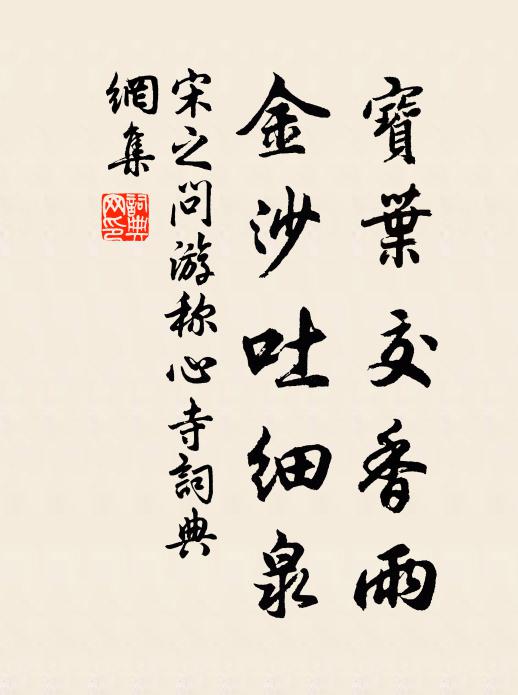 寶葉交香雨
金沙吐細泉
宋之问游称心寺詞典
網集
詞典
网印